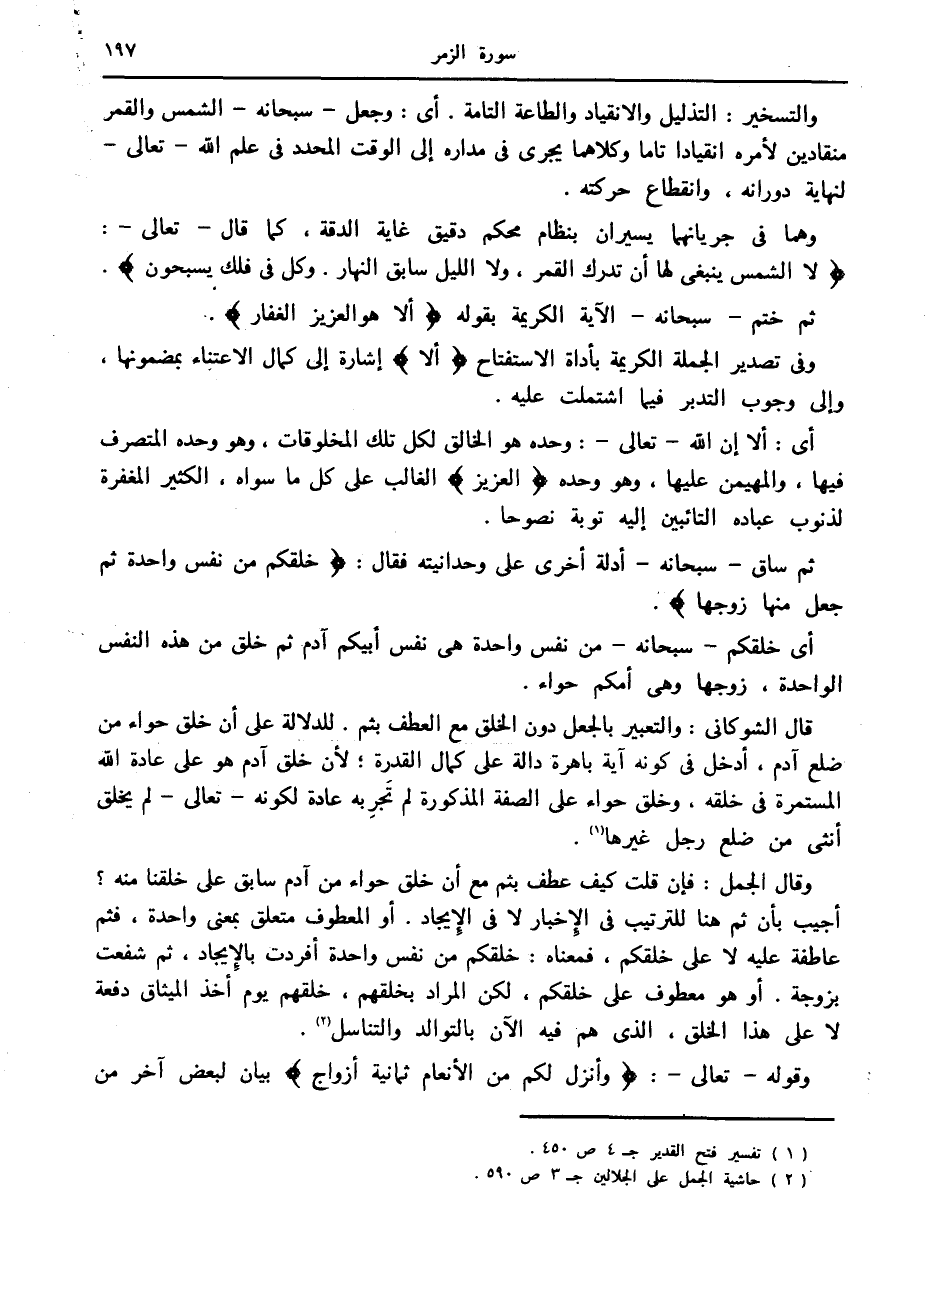 سورة الزمر
١٩٧
والتسخير : التذليل والانقياد والطاعة التامة . أى : وجعل – سبحانه – الشمس والقمر
منقادين لأمره انقيادا تاما وكلاهما يجرى فى مداره إلى الوقت المحدد فى علم الله – تعالى –
لنهاية دورانه ، وانقطاع حركته .
وهما فى جريانهما يسيران بنظام محكم دقيق غاية الدقة ، كما قال – تعالى – :
﴿ لا الشمس ينبغى لها أن تدرك القمر ، ولا الليل سابق النهار . وكل فى فلك يسبحون ﴾ .
ثم ختم – سبحانه – الآية الكريمة بقوله ﴿ ألا هوالعزيز الغفار ﴾ .
وفى تصدير الجملة الكريمة بأداة الاستفتاح ﴿ ألا ﴾ إشارة إلى كمال الاعتناء بمضمونها ،
وإلى وجوب التدبر فيما اشتملت عليه .
أى : ألا إن الله – تعالى – : وحده هو الخالق لكل تلك المخلوقات ، وهو وحده المتصرف
فيها ، والمهيمن عليها ، وهو وحده ﴿ العزيز ﴾ الغالب على كل ما سواه ، الكثير المغفرة
لذنوب عباده التائبين إليه توبة نصوحا .
ثم ساق – سبحانه – أدلة أخرى على وحدانيته فقال : ﴿ خلقكم من نفس واحدة ثم
جعل منها زوجها ﴾ .
أى خلقكم – سبحانه – من نفس واحدة هى نفس أبيكم آدم ثم خلق من هذه النفس
الواحدة ، زوجها وهى أمكم حواء .
قال الشوكانى : والتعبير بالجعل دون الخلق مع العطف بثم . للدلالة على أن خلق حواء من
ضلع آدم ، أدخل فى كونه آية باهرة دالة على كمال القدرة ؛ لأن خلق آدم هو على عادة الله
المستمرة فى خلقه ، وخلق حواء على الصفة المذكورة لم تَجرِ به عادة لكونه – تعالى – لم يخلق
أنثى من ضلع رجل غيرها(١) .
وقال الجمل : فإن قلت كيف عطف بثم مع أن خلق حواء من آدم سابق على خلقنا منه ؟
أجيب بأن ثم هنا للترتيب فى الإخبار لا فى الإيجاد . أو المعطوف متعلق بمعنى واحدة ، فثم
عاطفة عليه لا على خلقكم ، فمعناه : خلقكم من نفس واحدة أفردت بالإيجاد ، ثم شفعت
بزوجة . أو هو معطوف على خلقكم ، لكن المراد بخلقهم ، خلقهم يوم أخذ الميثاق دفعة
لا على هذا الخلق ، الذى هم فيه الآن بالتوالد والتناسل(٢) .
وقوله – تعالى – : ﴿ وأنزل لكم من الأنعام ثمانية أزواج ﴾ بيان لبعض آخر من
( ١ ) تفسير فتح القدير جـ ٤ ص ٤٥٠ .
( ٢ ) حاشية الجمل على الجلالين جـ ٣ ص ٥٩٠ .